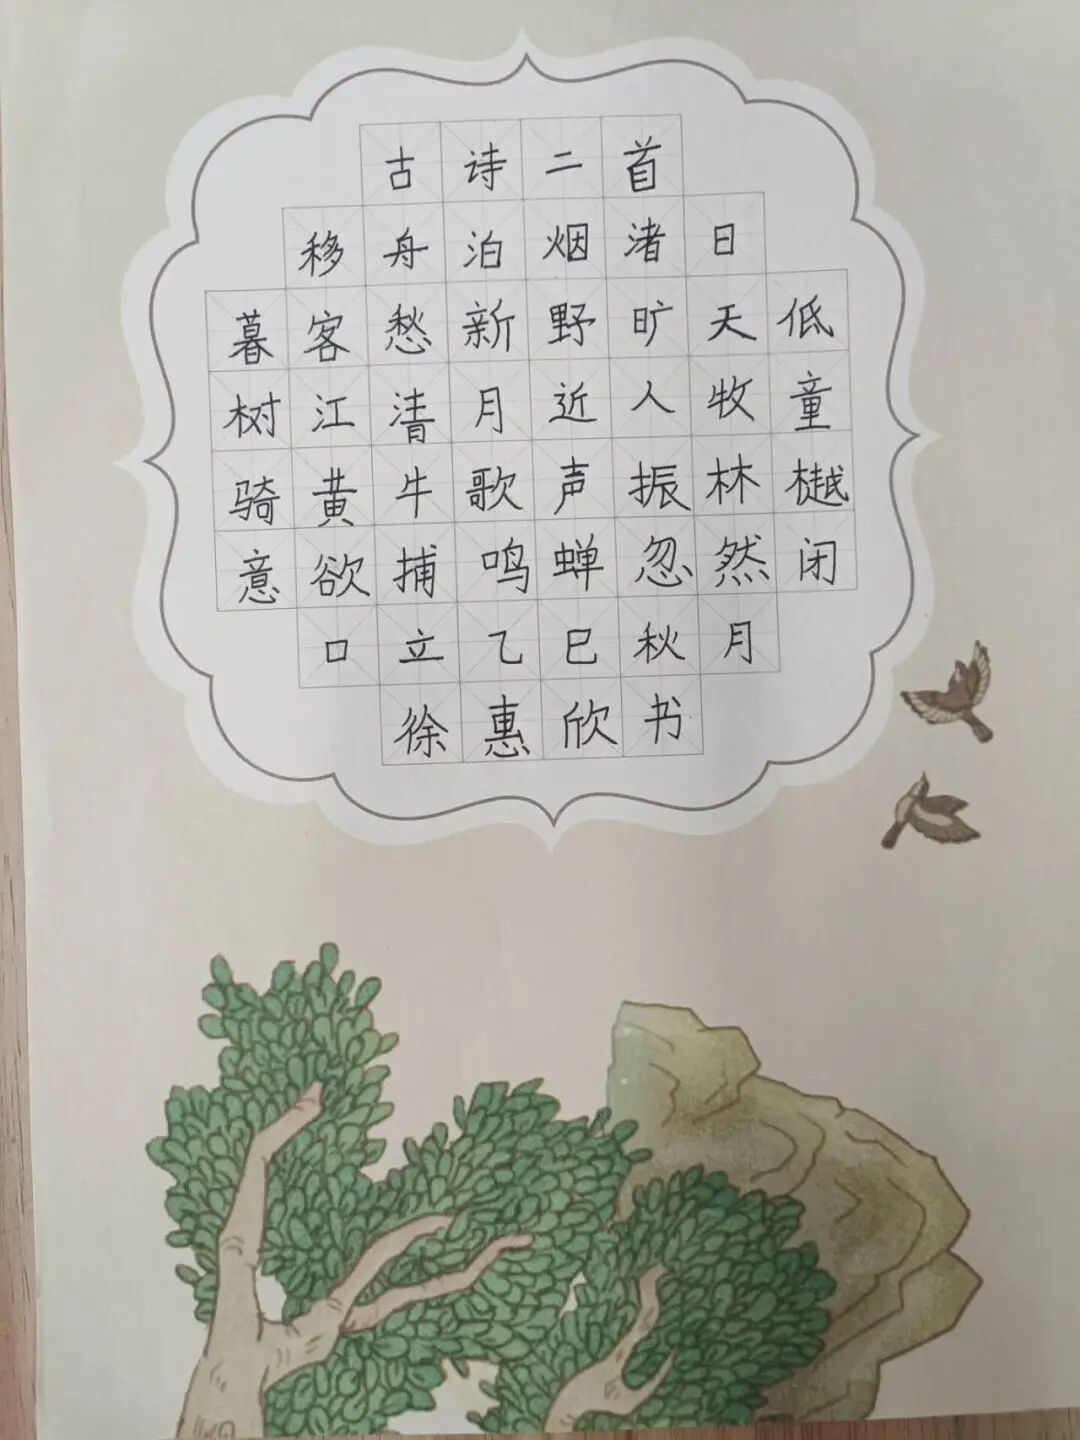 古诗二首
移舟泊烟渚日
暮客愁新野旷天低
树江清月近人牧童
骑黄牛歌声振林樾
意欲捕鸣蝉忽然闭
口立乙巳秋月
徐惠欣书